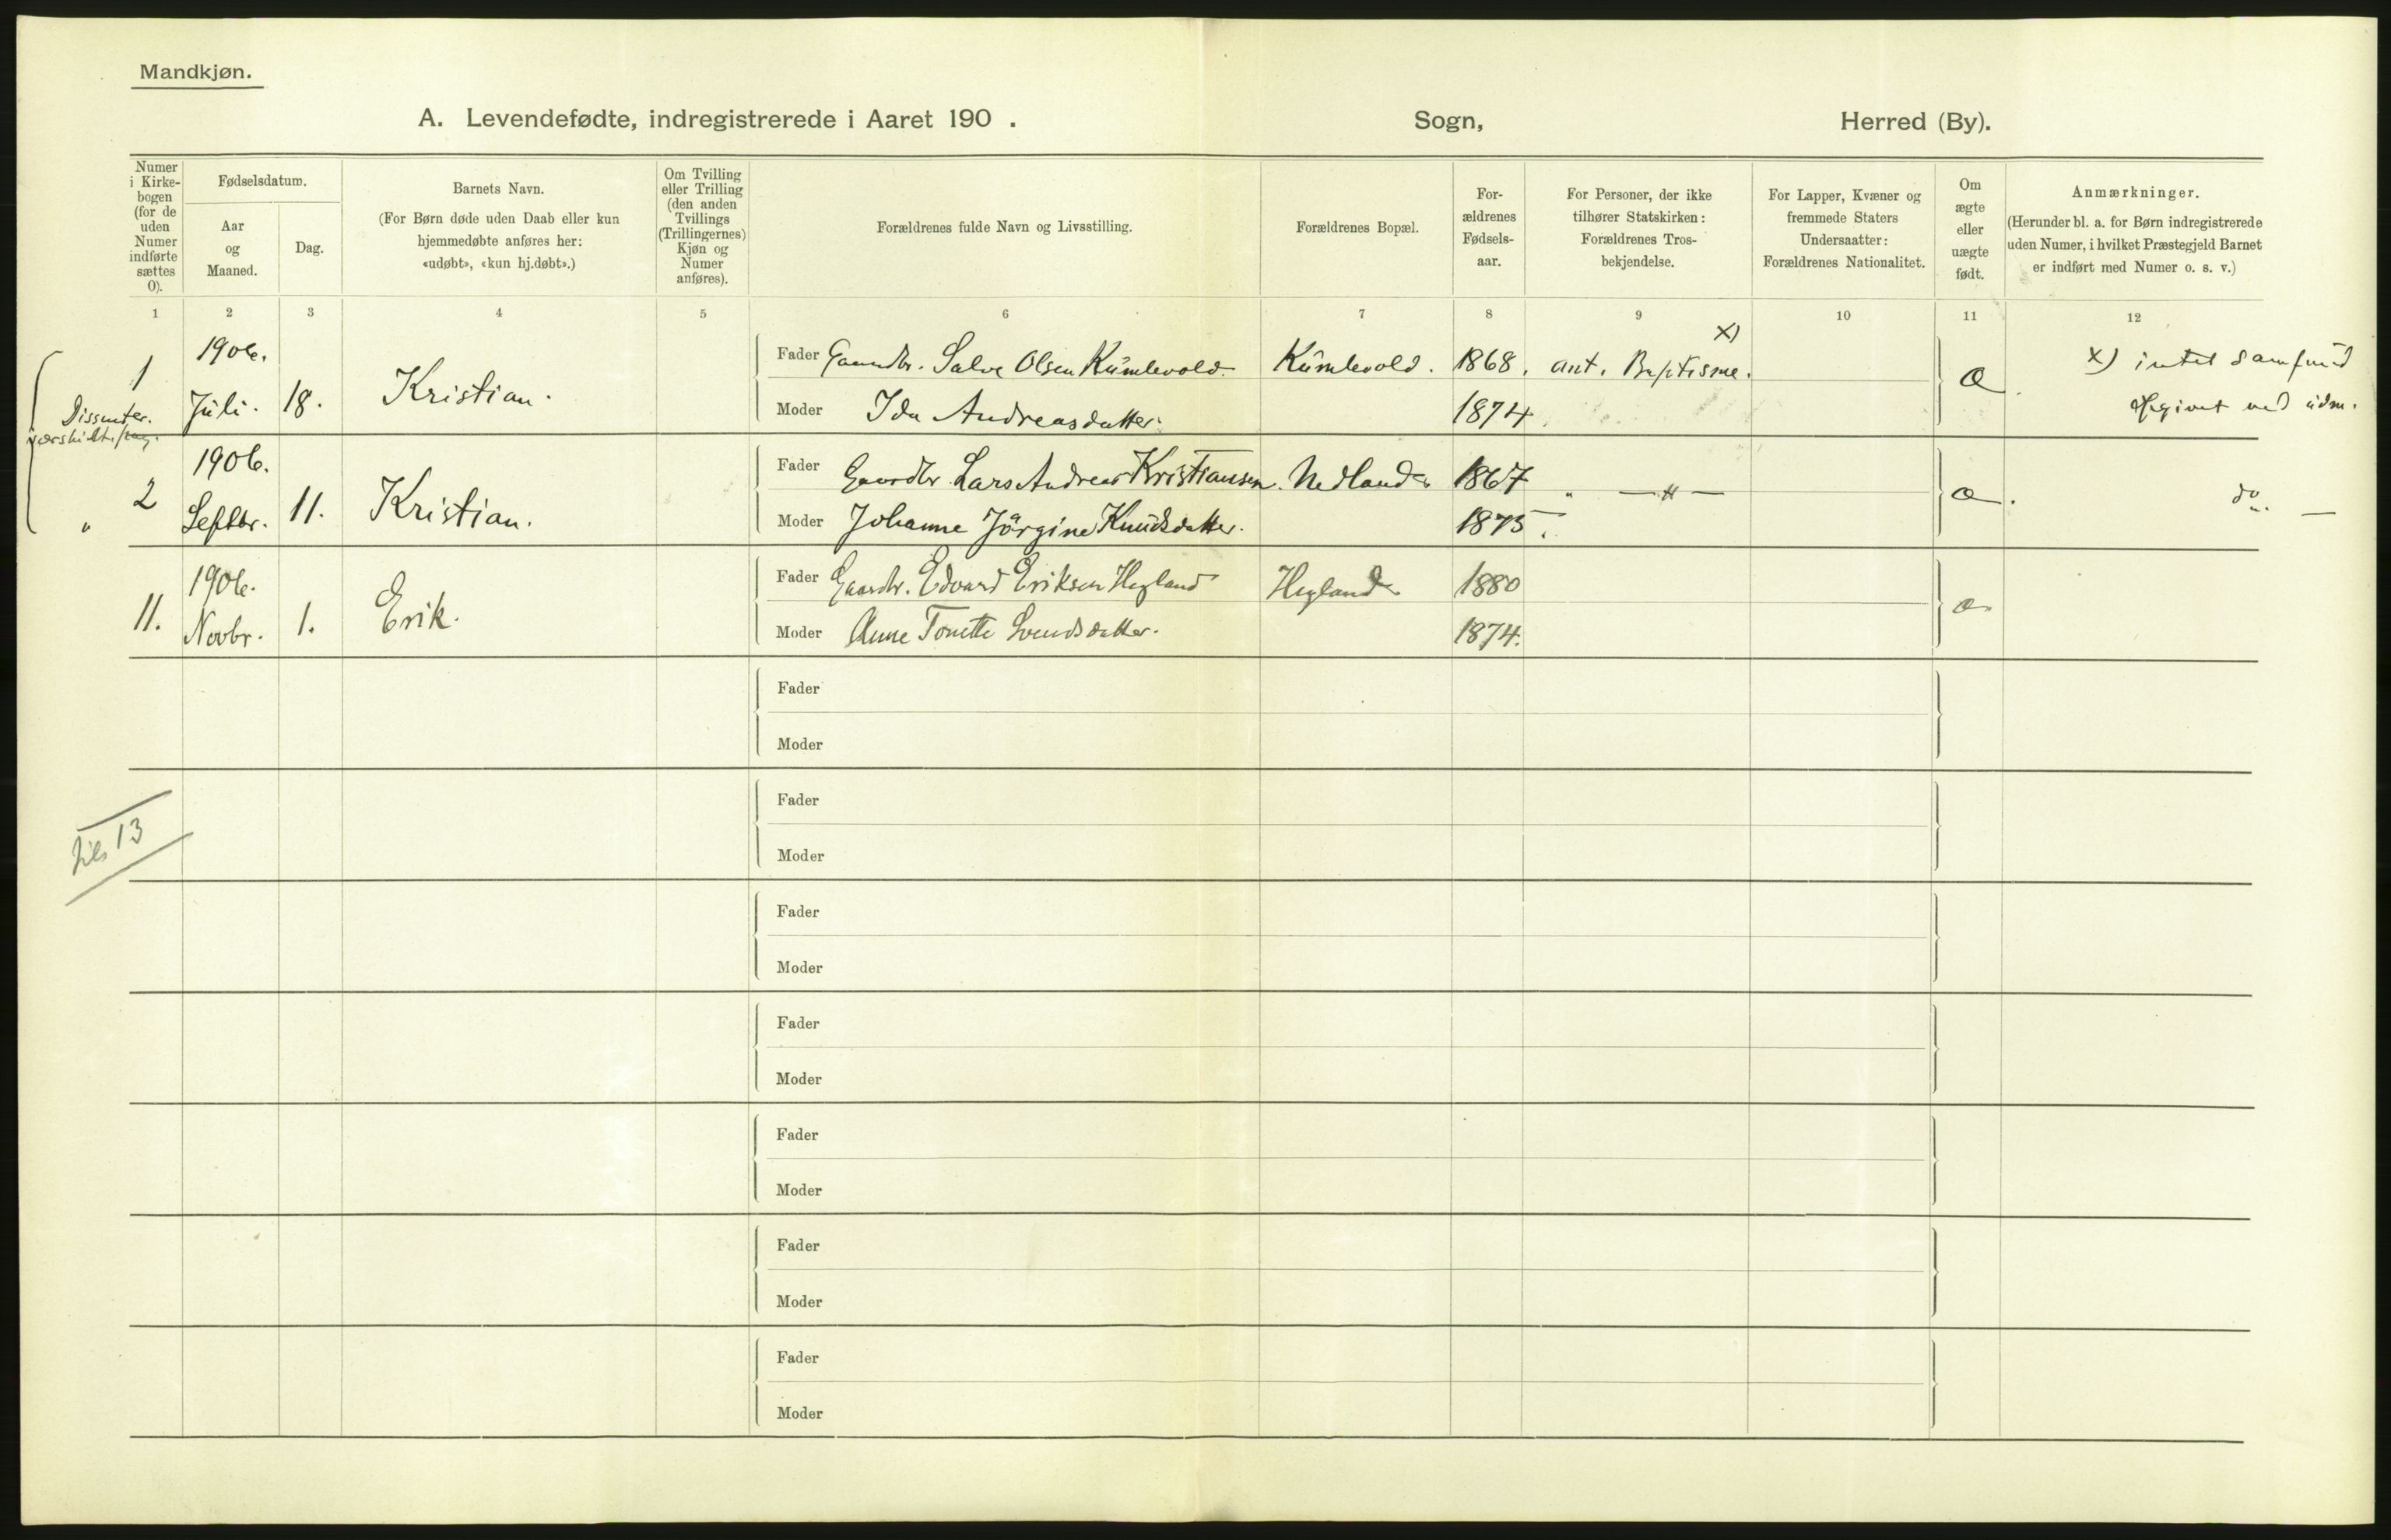 Mandkjøn.
A. Levendefødte, indregistrerede i Aaret 190 . Sogn, Herred (By).
Numer i Kirke-bogen (for de uden Numer indførte sættes 0).
Fødselsdatum.
Aar og Maaned.
Dag.
Barnets Navn.
(For Børn døde uden Daab eller kun hjemmedøbte anføres her: «udøbt», «kun hj.døbt».)
Om Tvilling eller Trilling (den anden Tvillings (Trillingernes) Kjøn og Numer anføres).
Forældrenes fulde Navn og Livsstilling.
Forældrenes Bopæl.
For-ældrenes Fødsels-aar.
For Personer, der ikke tilhører Statskirken: Forældrenes Tros-bekjendelse.
For Lapper, Kvæner og fremmede Staters Undersaatter: Forældrenes Nationalitet.
Om ægte eller uægte født.
Anmærkninger.
(Herunder bl. a. for Børn indregistrerede uden Numer, i hvilket Præstegjeld Barnet er indført med Numer o. s. v.)
1 2 3 4 5 6 7 8 9 10 11 12
1 1906. Juli. 18. Kristian.
Dissenter.
Fader Gaardbr. Salve Olsen Kumlevold. Kumlevold. 1868. ant. Baptisme. x)
Moder Ida Andreasdatter. 1874.
x) intet samfund
opgivet ved
2 1906. Septbr. 11. Kristian.
"
Fader Gaardbr. Lars Andreas Kristiansen. Nedland 1867 " — " —
Moder Johanne Jörgine Knudsdatter. 1875.
do. —
11. 1906. Novbr. 1. Erik.
Fader Gaardbr. Edvard Eriksen Hegland Hegland 1880
Moder Anne Tonette Svendsdatter. 1874.
Fader
Moder
Fader
Moder
13
Fader
Moder
Fader
Moder
Fader
Moder
Fader
Moder
Fader
Moder